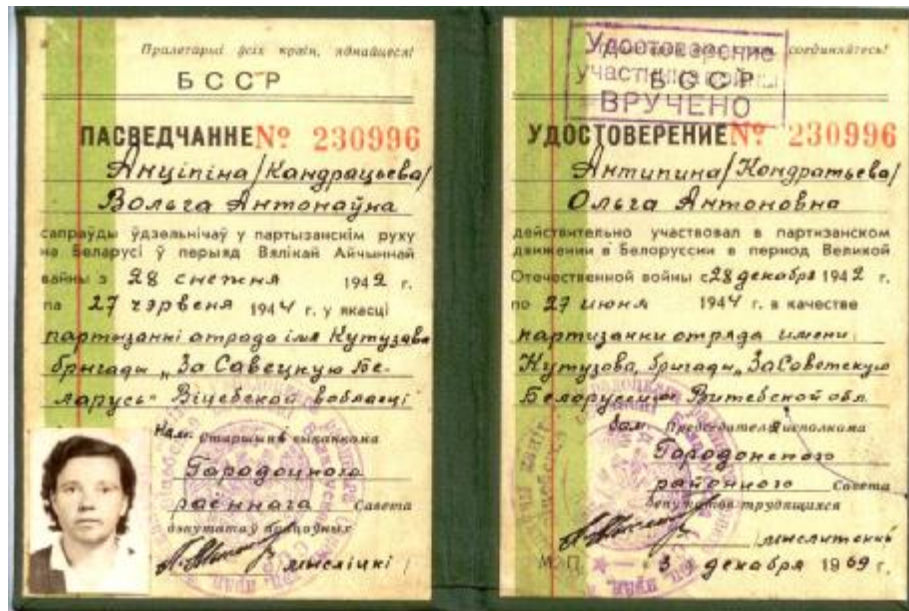 Пралетарыі ўсіх краін, яднайцеся!
БССР
ПАСВЕДЧАННЕ № 230996
Анціпіна/Кандрацьева/
Вольга Антонаўна
сапраўды ўдзельнічаў у партызанскім руху
на Беларусі ў перыяд Вялікай Айчыннай
вайны з 28 снежня 1942 г.
па 27 чэрвеня 1944 г. у якасці
партызанкі отрада імя Кутузава
бригады „За Савецкую Бе-
ларусь" Віцебскай вобласці
Нам. Старшыні выканкома
Гарадоцкага
раённага Савета
дэпутатаў працоўных
Удостоверение
участника войны
ВРУЧЕНО
соединяйтесь!
БССР
УДОСТОВЕРЕНИЕ № 230996
Антипина/Кондратьева/
Ольга Антоновна
действительно участвовал в партизанском
движении в Белоруссии в период Великой
Отечественной войны с 28 декабря 1942 г.
по 27 июня 1944 г. в качестве
партизанки отряда имени
Кутузова, бригады „За Советскую
Белоруссию" Витебской обл.
Зам. Председателя исполкома
Городокского
районного Совета
депутатов трудящихся
М. П. 3 декабря 1969 г.